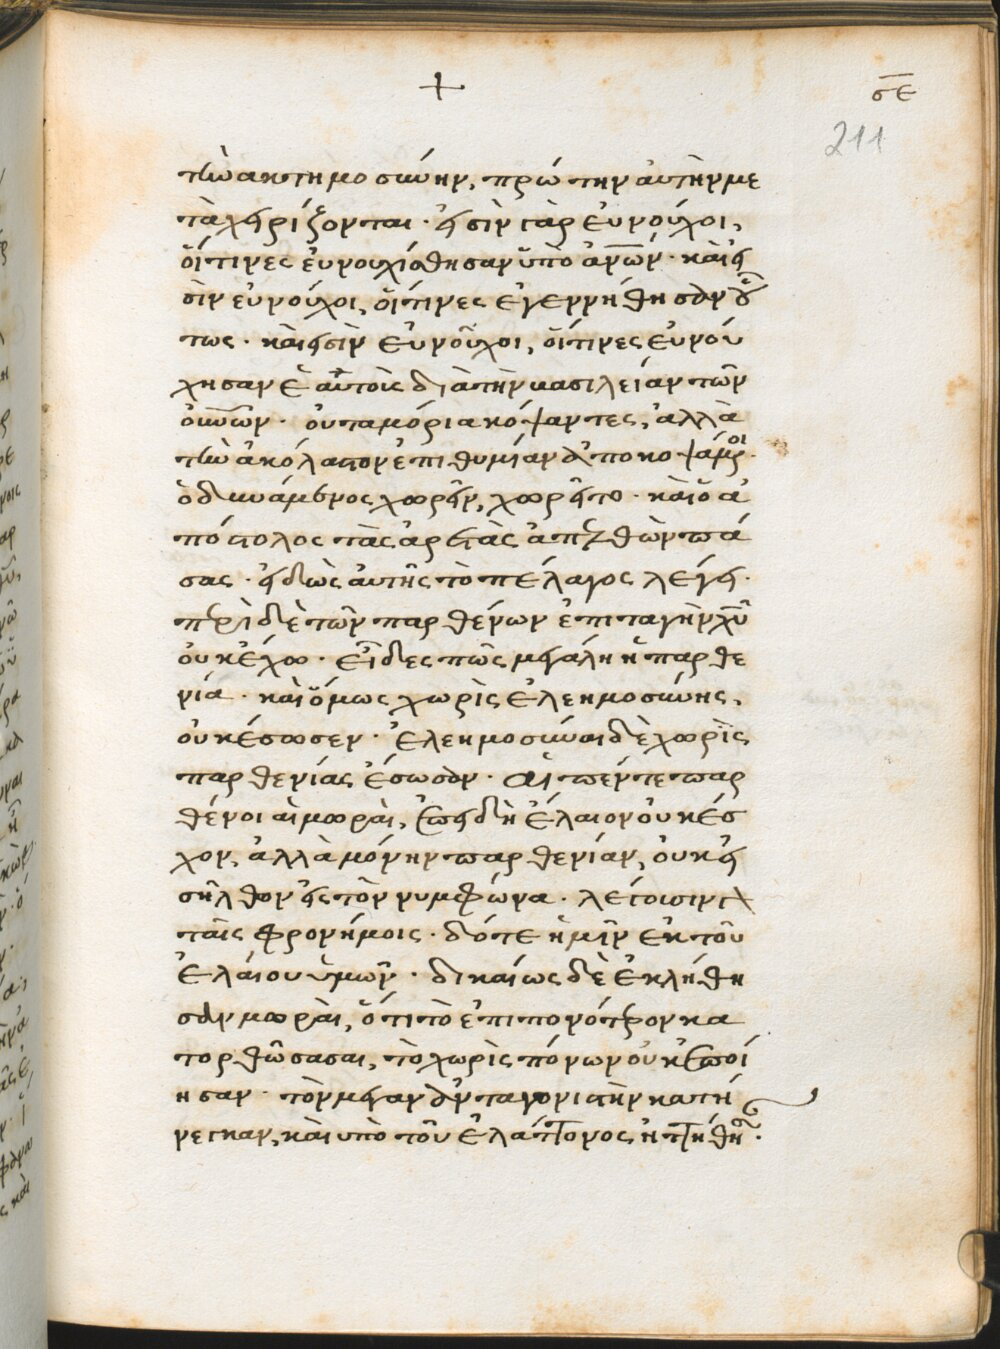 +
σε
211
τὴν ἀκτημοσύνην, πρώτην αὐτὴν με
ταχειρίζονται· εἰσὶν γὰρ εὐνοῦχοι,
οἵτινες εὐνουχίσθησαν ὑπὸ ἀν̅ων· καὶ εἰ
σὶν εὐνοῦχοι, οἵτινες ἐγεννήθησαν οὕ
τως· καὶ εἰσὶν εὐνοῦχοι, οἵτινες εὐνού
χησαν ἑαυτοὺς διὰ τὴν βασιλείαν τῶν
οὐ̅νων· οὐ τὰ μόρια κόψαντες, ἀλλὰ
τὴν ἀκόλαστον ἐπιθυμίαν ἀποκοψάμενοι·
ὁ δυνάμενος χωρεῖν, χωρείτω· καὶ ὁ ἀ
πόστολος τὰς ἀρετὰς ἀπελθὼν πά
σας· εἰδὼς αὐτῆς τὸ πέλαγος λέγει·
περὶ δὲ τῶν παρθένων ἐπιταγὴν χυ̅
οὐκ ἔχω· εἶδες πῶς μεγάλη ἡ παρθε
νία· καὶ ὅμως χωρὶς ἐλεημοσύνης,
οὐκ ἔσωσεν· ἐλεημοσύναι δὲ χωρὶς
παρθενίας ἔσωσαν· αἱ πέντε παρ
θένοι αἱ μωραὶ, ἐπειδὴ ἔλαιον οὐκ ἔσ
χον, ἀλλὰ μόνην παρθενίαν, οὐκ εἰ
σῆλθον εἰς τὸν νυμφῶνα· λέγουσιν γὰρ
ταῖς φρονήμοις· δότε ἡμῖν ἐκ τοῦ
ἐλαίου ὑμῶν· δικαίως δὲ ἐκλήθη
σαν μωραὶ, ὅτι τὸ ἐπιπονότερον κα
τορθώσασαι, τὸ χωρὶς πόνων οὐκ ἐποί
ησαν· τὸν μέγαν ἀνταγωνιστὴν κατή
νεγκαν, καὶ ὑπὸ τοῦ ἐλάττονος ἡττήθησαν·